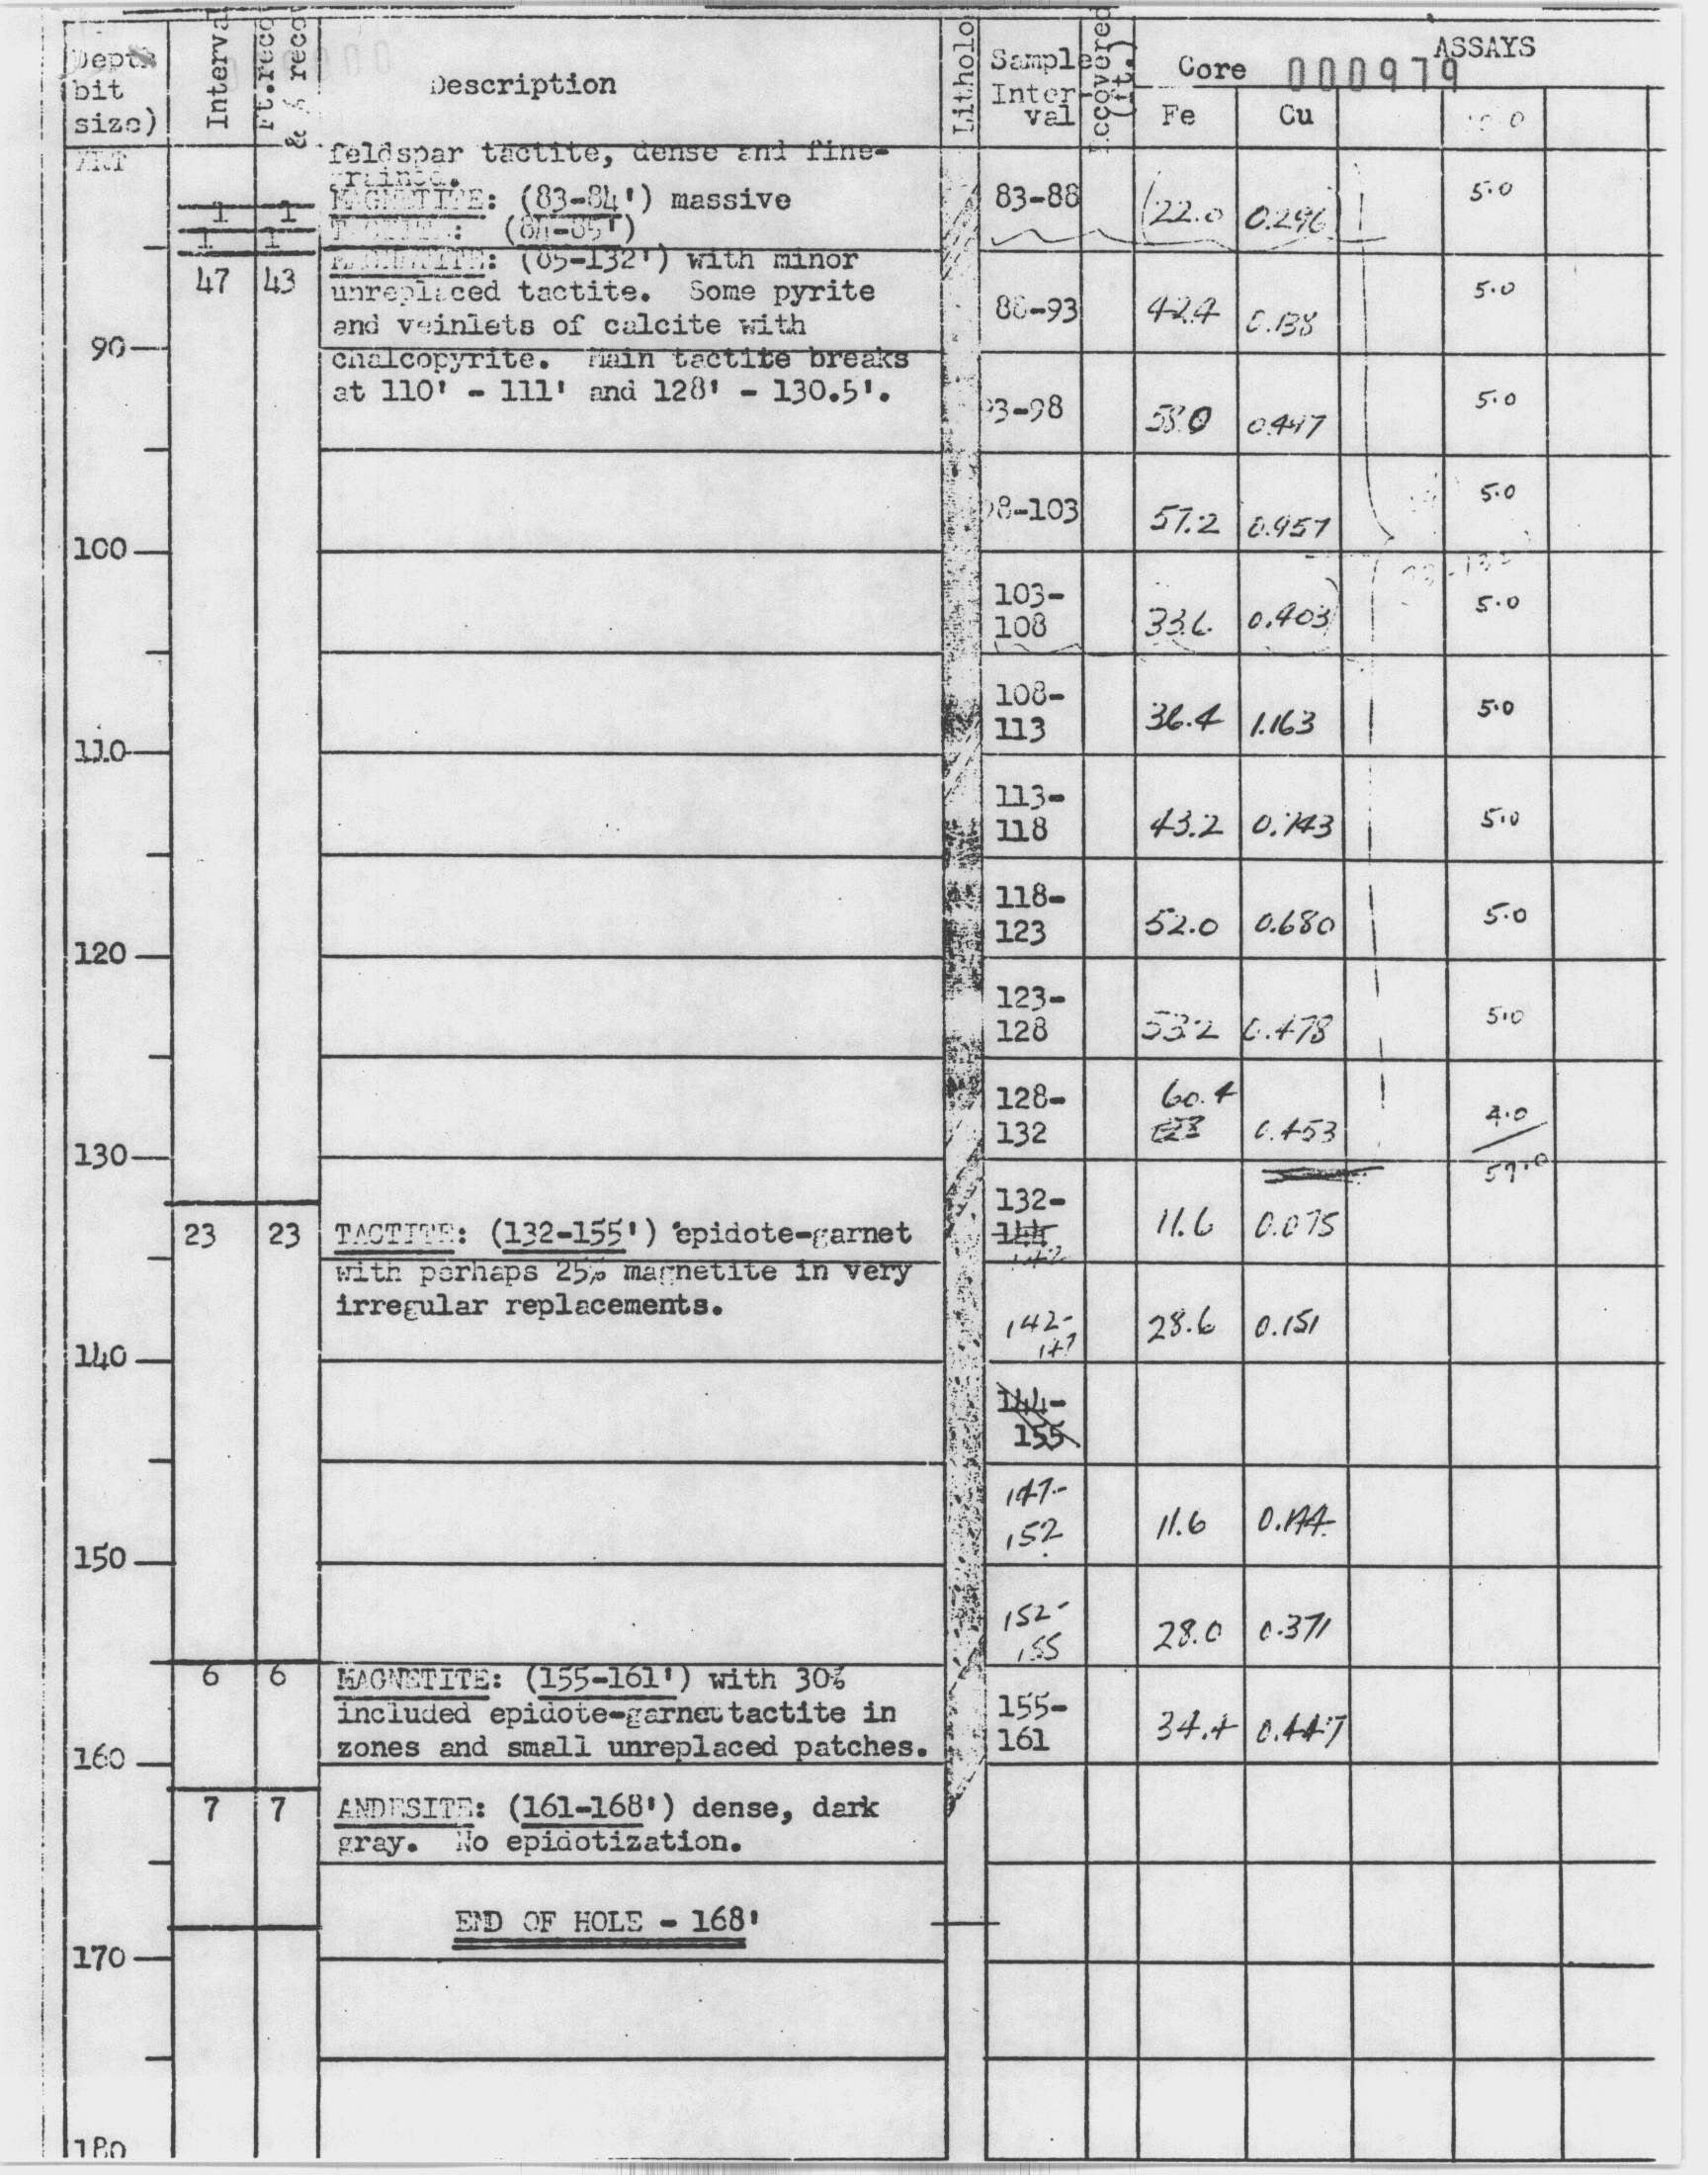 Depth
bit
size)
Interva
Ft.reco
& % reco
Description
Litholo
Sample
Inter-
val
(ft.)
Core
000979
ASSAYS
Fe
Cu
feldspar tactite, dense and fine-
grained.
1 1 MAGNETITE: (83-84') massive
1 1 TACTITE: (84-85')
83-88 22.0 0.296 5.0
47 43 MAGNETITE: (85-132') with minor
unreplaced tactite. Some pyrite
and veinlets of calcite with
88-93 42.4 0.138 5.0
90
chalcopyrite. Main tactite breaks
at 110' - 111' and 128' - 130.5'.
93-98 58.0 5.0
98-103 57.2 0.957 5.0
100
103-
108 33.6 0.403 5.0
108-
113 36.4 1.163 5.0
110
113-
118 43.2 0.743 5.0
118-
123 52.0 0.680 5.0
120
123-
128 53.2 0.478 5.0
128- 60.4 4.0
132 0.453
130
59.0
132-
144 11.6 0.075
142
23 23 TACTITE: (132-155') epidote-garnet
with perhaps 25% magnetite in very
irregular replacements.
142-
147 28.6 0.151
140
144-
155
147-
152 11.6
150
152-
155 28.0 0.371
6 6 MAGNETITE: (155-161') with 30%
included epidote-garnet tactite in
zones and small unreplaced patches.
155-
161 34.4 0.447
160
7 7 ANDESITE: (161-168') dense, dark
gray. No epidotization.
END OF HOLE - 168'
170
180